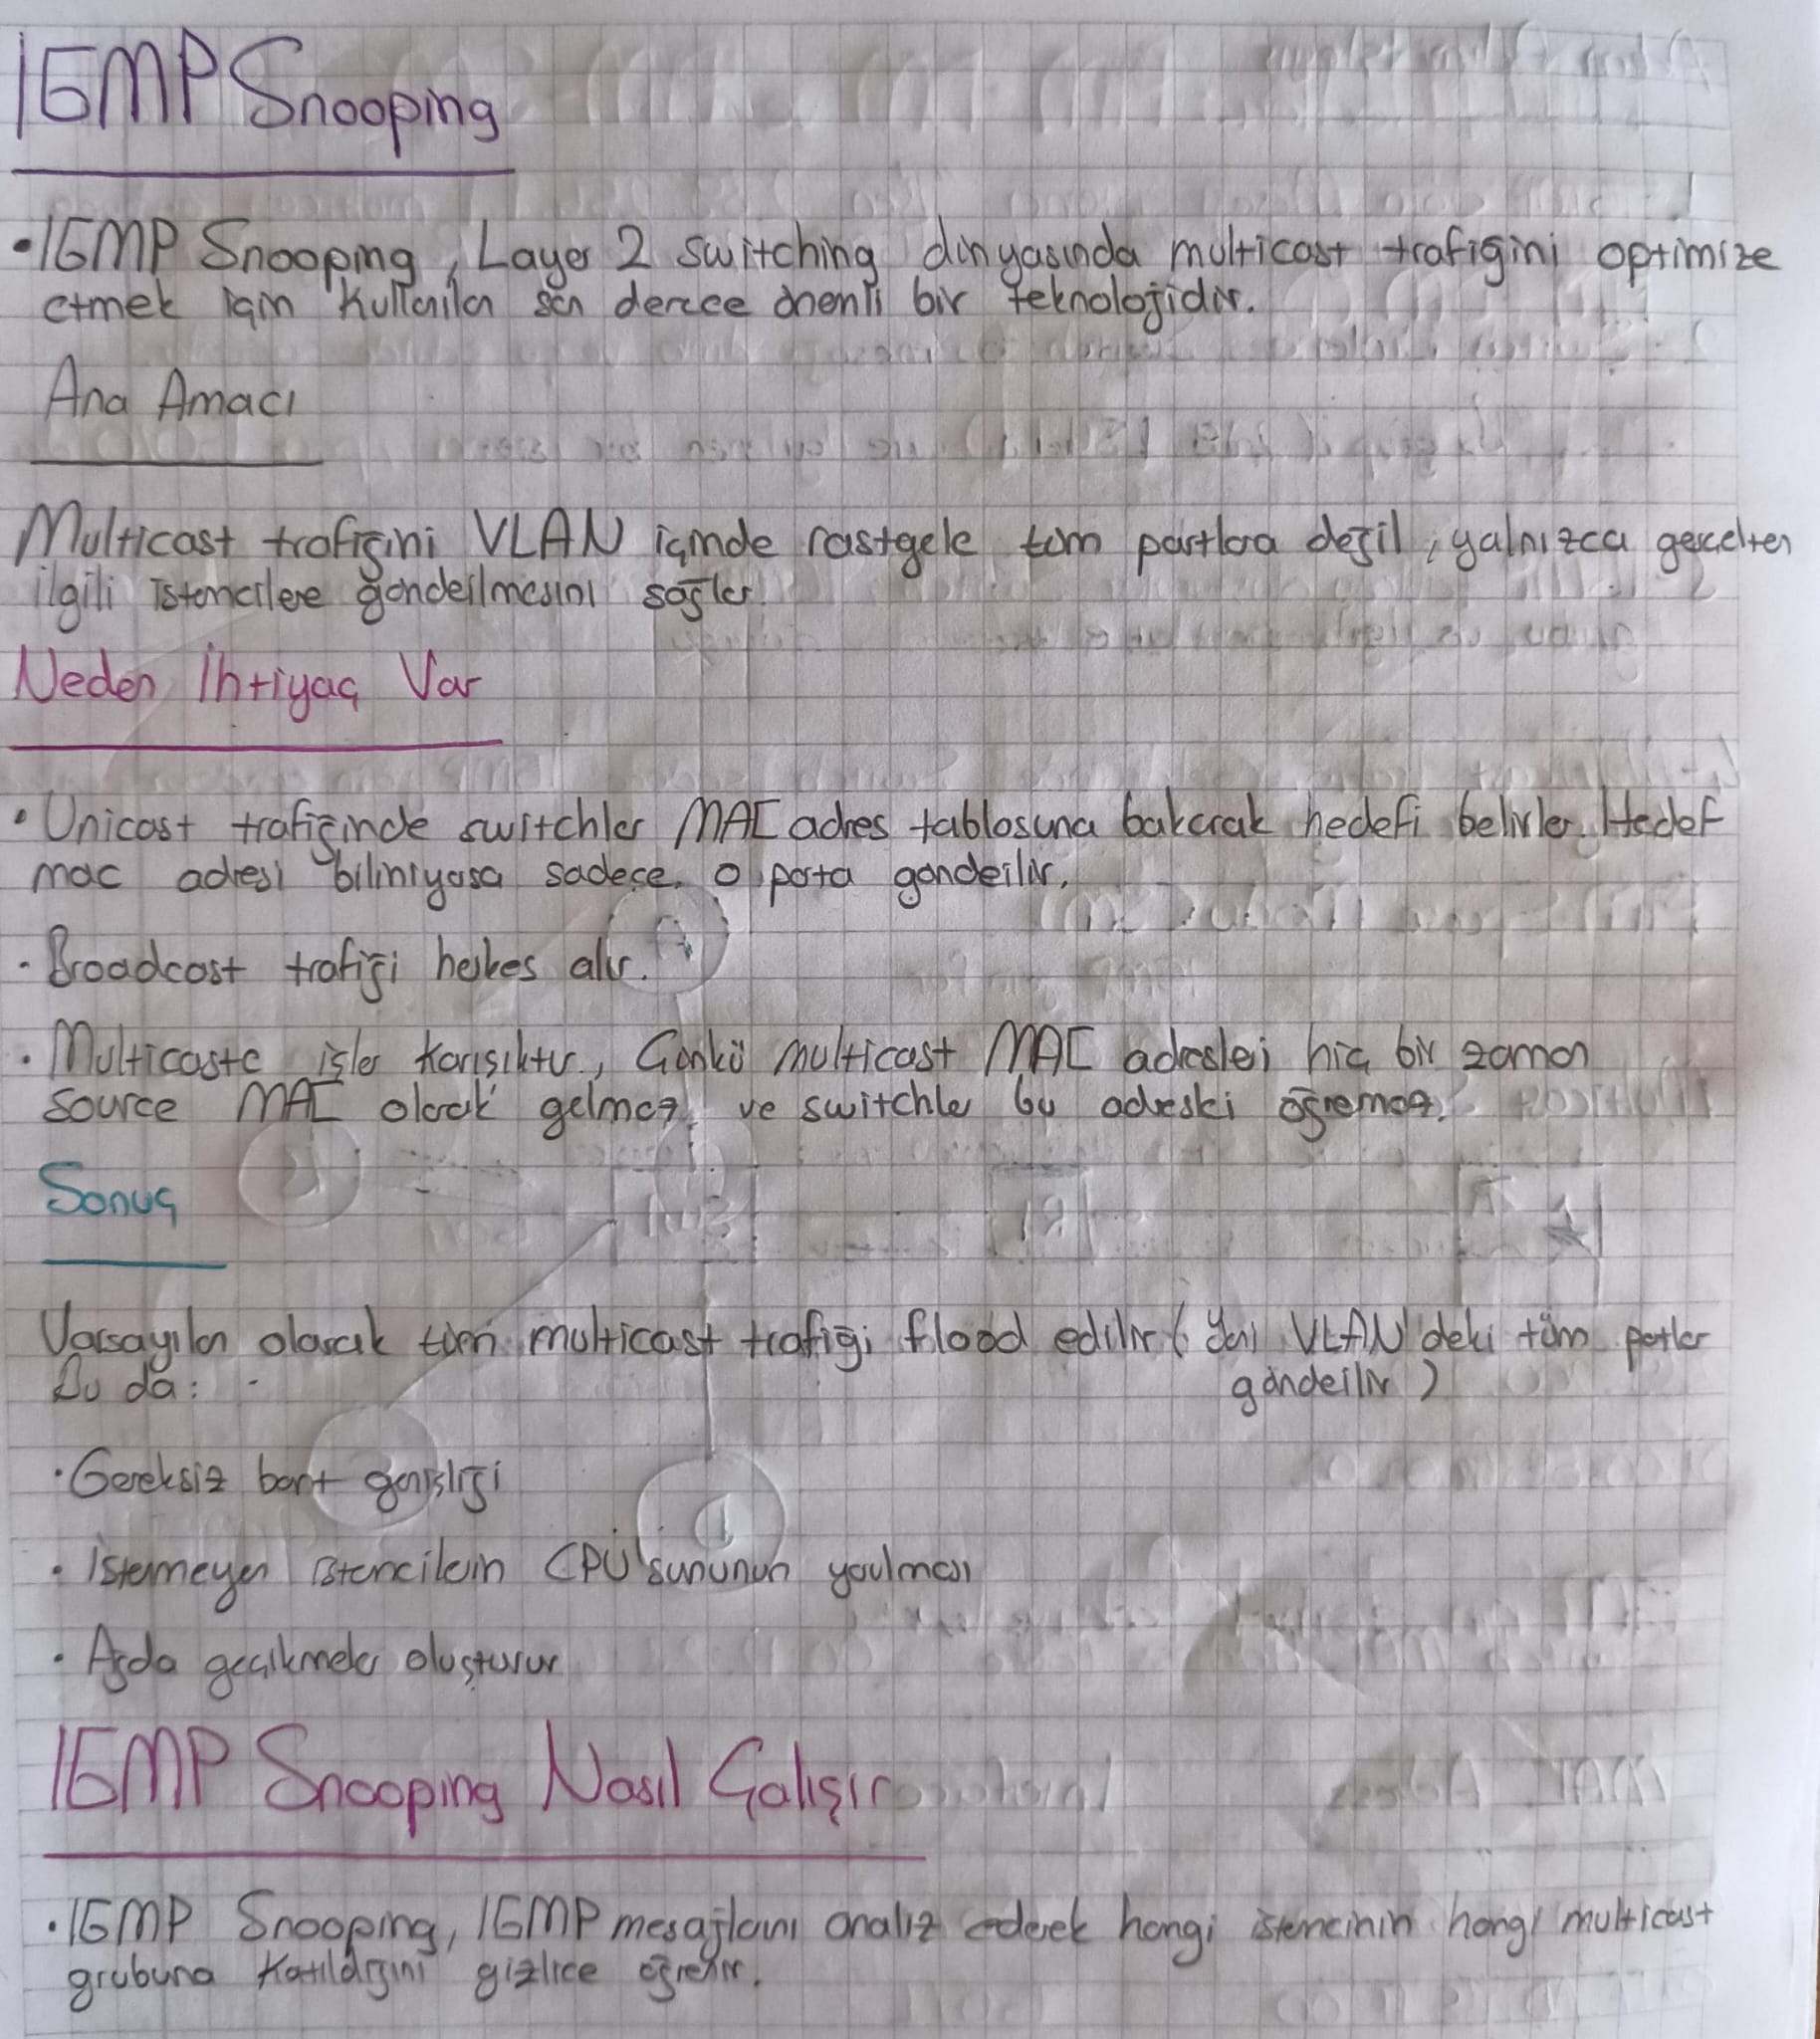 IGMP Snooping
• IGMP Snooping, Layer 2 switching dünyasında multicast trafiğini optimize
etmek için kullanılan son derece önemli bir teknolojidir.
Ana Amacı
Multicast trafiğini VLAN içinde rastgele tüm portlara değil, yalnızca gerçekten
ilgili istemcilere gönderilmesini sağlar.
Neden İhtiyaç Var
• Unicast trafiğinde switchler MAC adres tablosuna bakarak hedefi belirler. Hedef
mac adresi biliniyorsa sadece o porta gönderilir.
• Broadcast trafiği herkes alır.
• Multicastte işler karışıktır, Çünkü multicast MAC adresleri hiç bir zaman
source MAC olarak gelmez ve switchler bu adreski öğremez.
Sonuç
Varsayılan olarak tüm multicast trafiği flood edilir ( Yani VLAN'deki tüm portlar
Bu da: gönderilir )
• Gereksiz bant genişliği
• İstemeyen istemcilerin CPU'sununun yorulması
• Ağda gecikmeler oluşturur
IGMP Snooping Nasıl Çalışır
• IGMP Snooping, IGMP mesajlarını analiz ederek hangi istemcinin hangi multicast
grubuna katıldığını gizlice öğrenir.